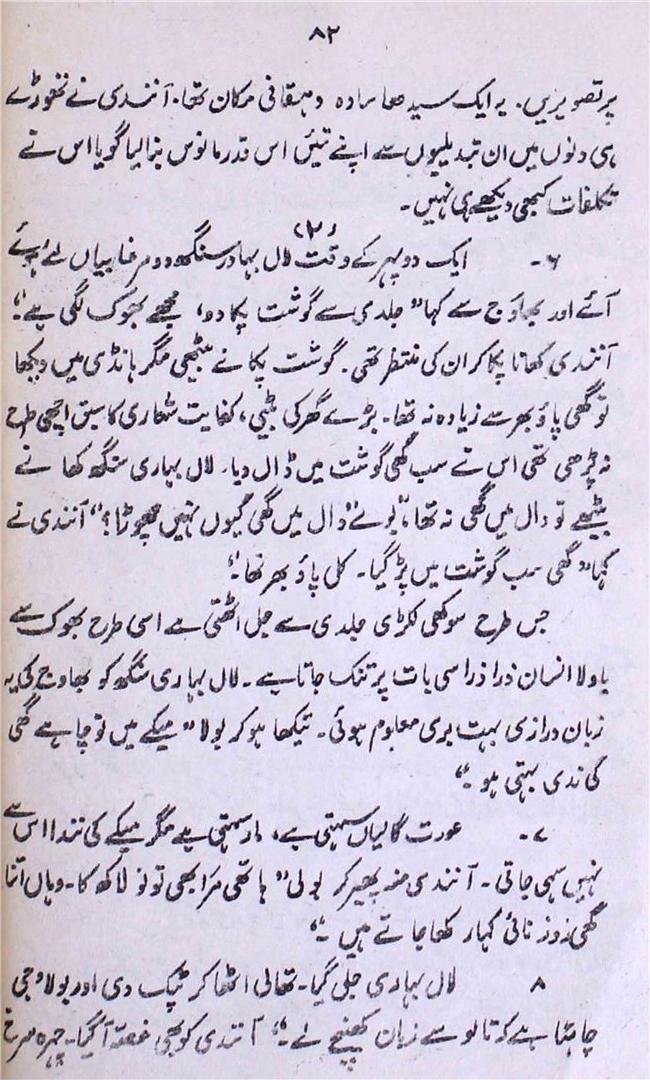 ۸۲
پر تصویریں۔ یہ ایک سیدھا سادہ دہقانی مکان تھا۔ آنندی نے تھوڑے
ہی دنوں میں ان تبدیلیوں سے اپنے تئیں اس قدر مانوس بنا لیا گویا اس نے
تکلفات کبھی دیکھے ہی نہیں۔
(۲)
۶۔ ایک دوپہر کے وقت لال بہادر سنگھ دو مرغابیاں لئے ہوئے
آئے اور بھاوج سے کہا "جلدی سے گوشت پکا دو، مجھے بھوک لگی ہے"۔
آنندی کھانا پکا کر ان کی منتظر تھی۔ گوشت پکانے بیٹھی مگر ہانڈی میں دیکھا
تو گھی پاؤ بھر سے زیادہ نہ تھا۔ بڑے گھر کی بیٹی، کفایت شعاری کا سبق اچھی طرح
نہ پڑھی تھی اس نے سب گھی گوشت میں ڈال دیا۔ لال بہاری سنگھ کھانے
بیٹھے تو دال میں گھی نہ تھا، بولے "دال میں گھی کیوں نہیں چھوڑا؟" آنندی نے
کہا "گھی سب گوشت میں پڑ گیا۔ کل پاؤ بھر تھا"۔
جس طرح سوکھی لکڑی جلدی سے جل اٹھتی ہے اسی طرح بھوک سے
باولا انسان ذرا ذرا سی بات پر تنک جاتا ہے۔ لال بہاری سنگھ کو بھاوج کی یہ
زبان درازی بہت بری معلوم ہوئی۔ تیکھا ہو کر بولا "میکے میں تو چاہے گھی
کی ندی بہتی ہو۔"
۷۔ عورت گالیاں سہتی ہے، مار سہتی ہے مگر میکے کی نندا اس سے
نہیں سہی جاتی۔ آنندی منہ پھیر کر بولی "ہاتھی مرا بھی تو نو لاکھ کا۔ وہاں اتنا
گھی روز نائی کہار کھا جاتے ہیں۔"
۸ لال بہاری جل گیا۔ تھالی اٹھا کر پٹک دی اور بولا "جی
چاہتا ہے کہ تالو سے زبان کھینچ لے۔" آنندی کو بھی غصہ آ گیا۔ چہرہ سرخ